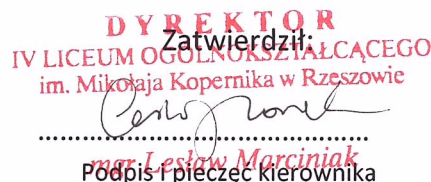 DYREKTOR
Zatwierdził:
IV LICEUM OGÓLNOKSZTAŁCĄCEGO
im. Mikołaja Kopernika w Rzeszowie
mgr Lesław Marciniak
Podpis i pieczęć kierownika